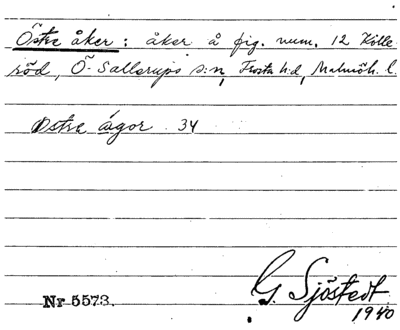 Östra åker: åker å fig. num. 12 Kölle-
röd, Ö. Sallerups s:n, Frosta h:d, Malmöh. l.
Östra ågor 34
Nr 5573.
G. Sjöstedt
1940